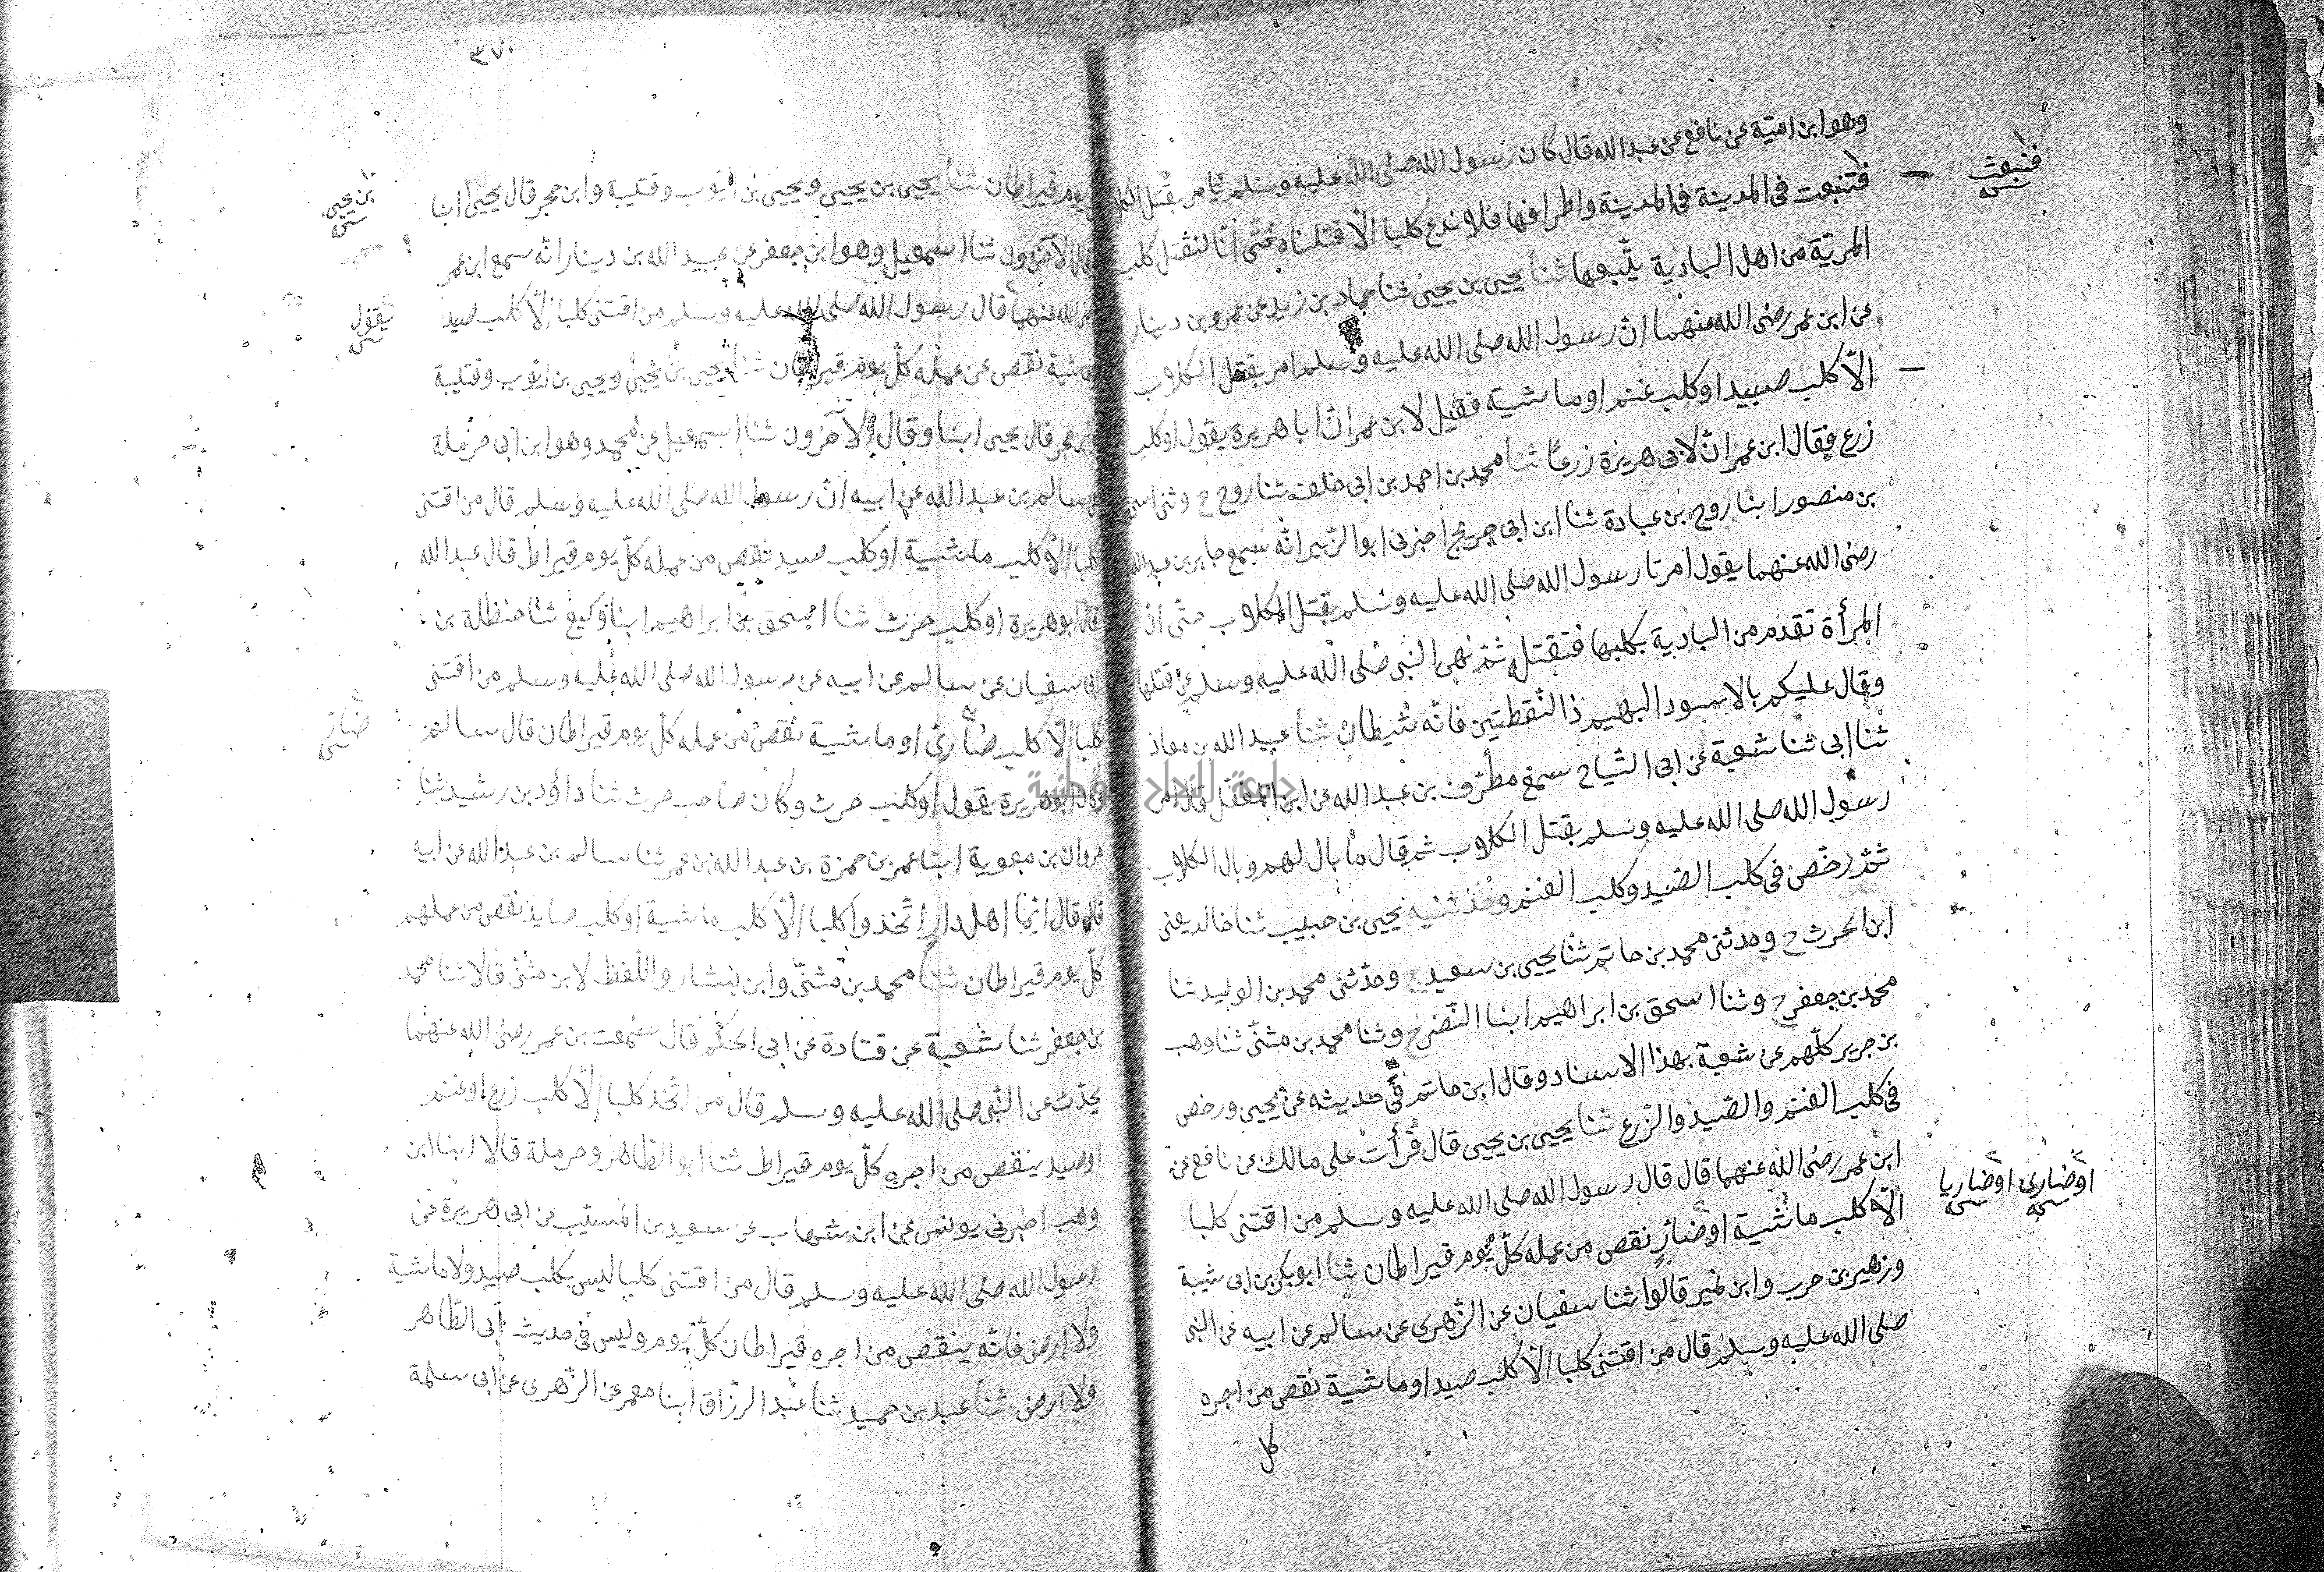 وهو ابن امية عن نافع عن عبد الله قال كان رسول الله صلى الله عليه وسلم يأمر بقتل الكلاب
فتنبعت فى المدينة فى المدينة واطرافها فلا ندع كلبا الا قتلناه حتى انا لنقتل كلب
المرية من اهل البادية يتبعها ثنا يحيى بن يحيى ثنا حماد بن زيد عن عمرو بن دينار
عن ابن عمر رضى الله عنهما ان رسول الله صلى الله عليه وسلم امر بقتل الكلاب
الا كلب صيد او كلب غنم او ماشية فقيل لابن عمر ان ابا هريرة يقول او كلب
زرع فقال ابن عمر ان لابى هريرة زرعا ثنا محمد بن احمد بن ابى خلف ثنا روح ح وثنى اسحق
بن منصور ابنا روح بن عبادة ثنا ابن ابى جريج اخبرنى ابو الزبير انه سمع جابر بن عبد الله
رضى الله عنهما يقول امرنا رسول الله صلى الله عليه وسلم بقتل الكلاب حتى ان
المرأة تقدم من البادية بكلبها فتقتله ثم نهى النبى صلى الله عليه وسلم عن قتلها
وقال عليكم بالاسود البهيم ذا النقطتين فانه شيطان ثنا عبيد الله بن معاذ
ثنا ابى ثنا شعبة عن ابى التياح سمع مطرف بن عبد الله عن ابن المغفل قال امر
رسول الله صلى الله عليه وسلم بقتل الكلاب ثم قال ما بال لهم وبال الكلاب
ثم رخص فى كلب الصيد وكلب الغنم وحدثنيه يحيى بن حبيب ثنا خالد يعنى
ابن الحرث ح وحدثنى محمد بن حاتم ثنا يحيى بن سعيد ح وحدثنى محمد بن الوليد ثنا
محمد بن جعفر ح وثنا اسحق بن ابراهيم ابنا النضر ح وثنا محمد بن مثنى ثنا وهب
بن جرير كلهم عن شعبة بهذا الاسناد وقال ابن حاتم فى حديثه عن يحيى ورخص
فى كلب الغنم والصيد والزرع ثنا يحيى بن يحيى قال قرأت على مالك عن نافع عن
ابن عمر رضى الله عنهما قال قال رسول الله صلى الله عليه وسلم من اقتنى كلبا
الا كلب ماشية او ضار نقص من عمله كل يوم قيراطان ثنا ابو بكر بن ابى شيبة
وزهير بن حرب وابن نمير قالوا ثنا سفيان عن الزهرى عن سالم عن ابيه عن النبى
صلى الله عليه وسلم قال من اقتنى كلبا الا كلب صيد او ماشية نقص من اجره
كل
فتنبعث
او ضارى او ضاريا
٣٧٠
كل يوم قيراطان ثنا يحيى بن يحيى ويحيى بن ايوب وقتيبة وابن حجر قال يحيى ابنا
وقال الآخرون ثنا اسمعيل وهو ابن جعفر عن عبد الله بن دينار انه سمع ابن عمر
رضى الله عنهما قال رسول الله صلى الله عليه وسلم من اقتنى كلبا الا كلب صيد
او ماشية نقص عن عمله كل يوم قيراطان ثنا يحيى بن يحيى ويحيى بن ايوب وقتيبة
وابن حجر قال يحيى ابنا وقال الآخرون ثنا اسمعيل عن محمد وهو ابن ابى حرملة
عن سالم بن عبد الله عن ابيه ان رسول الله صلى الله عليه وسلم قال من اقتنى
كلبا الا كلب ماشية او كلب صيد نقص من عمله كل يوم قيراط قال عبد الله
قال ابو هريرة او كلب حرث ثنا اسحق بن ابراهيم ابنا وكيع ثنا حنظلة بن
ابى سفيان عن سالم عن ابيه عن رسول الله صلى الله عليه وسلم من اقتنى
كلبا الا كلب ضارى او ماشية نقص من عمله كل يوم قيراطان قال سالم
وكان ابو هريرة يقول او كلب حرث وكان صاحب حرث ثنا داؤد بن رشيد ثنا
مروان بن معوية ابنا عمر بن حمزة بن عبد الله بن عمر ثنا سالم بن عبد الله عن ابيه
قال قال ايما اهل دار اتخذوا كلبا الا كلب ماشية او كلب صايد نقص من عملهم
كل يوم قيراطان ثنا محمد بن مثنى وابن بشار واللفظ لابن مثنى قالا ثنا محمد
بن جعفر ثنا شعبة عن قتادة عن ابى الحكم قال سمعت بن عمر رضى الله عنهما
يحدث عن النبى صلى الله عليه وسلم قال من اتخذ كلبا الا كلب زرع او غنم
او صيد ينقص من اجره كل يوم قيراط ثنا ابو الطاهر وحرملة قالا ابنا ابن
وهب اخبرنى يونس عن ابن شهاب عن سعيد بن المسيب عن ابى هريرة عن
رسول الله صلى الله عليه وسلم قال من اقتنى كلبا ليس بكلب صيد ولا ماشية
ولا ارض فانه ينقص من اجره قيراطان كل يوم وليس فى حديث ابى الطاهر
ولا ارض ثنا عبد بن حميد ثنا عبد الرزاق ابنا معمر عن الزهرى عن ابى سلمة
بن يحيى
يقول
ضار